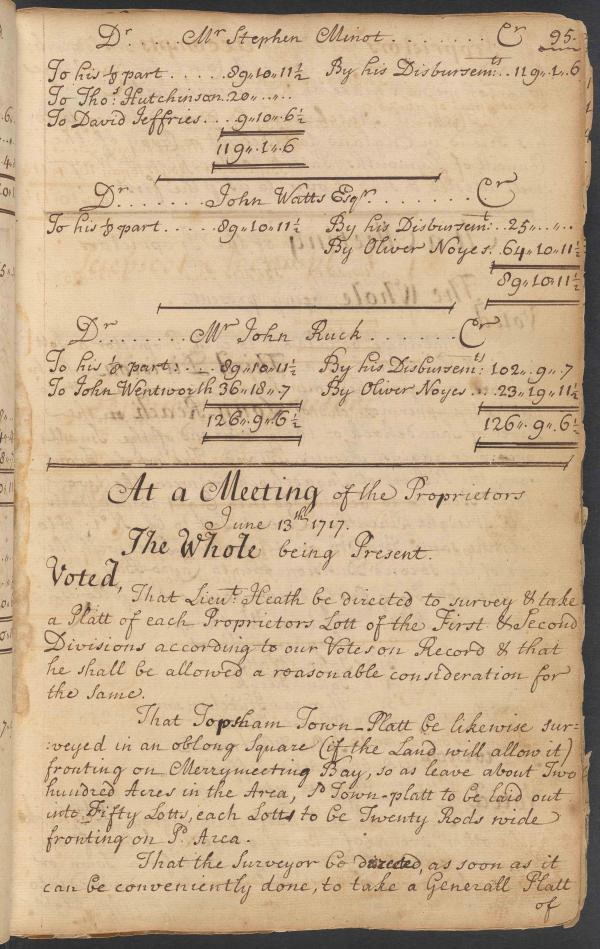 Dr. . . . . Mr Stephen Minot . . . . . . . . Cr 95.
To his ⅛ part . . . . . 89„10„11½ By his Disbursemts: . . 119„. 1„. 6
To Thos: Hutchinson 20„ . „ .
To David Jeffries. . . 9„10„ 6½
119„. 1„. 6
Dr. . . . . . . John Watts Esqr. . . . . . . . Cr
To his ⅛ part . . . . . 89„10„11½ By his Disbursemt: . . 25„ . „ . .
By Oliver Noyes. 64„10„11½
89„10„11½
Dr. . . . . . . . Mr John Ruck . . . . . . . Cr
To his ⅛ part . . . . 89„10„11½ By his Disbursemts: 102„. 9„. 7
To John Wentworth 36„18„. 7 By Oliver Noyes . . . 23„19„11½
126„. 9„. 6½ 126„. 9„. 6½
At a Meeting of the Proprietors
June 13th 1717.
The Whole being Present.
Voted,
That Lieut: Heath be directed to survey & take
a Platt of each Proprietors Lott of the First & Second
Divisions according to our Votes on Record & that
he shall be allowed a reasonable consideration for
the same.
That Topsham Town-Platt be likewise sur=
:veyed in an oblong Square (if the Land will allow it)
fronting on Merrymeeting Bay, so as leave about Two
hundred Acres in the Area, sd Town-platt to be laid out
into Fifty Lotts, each Lotts to be Twenty Rods wide
fronting on sd. Area.
That the Surveyor be directed, as soon as it
can be conveniently done, to take a Generall Platt
of